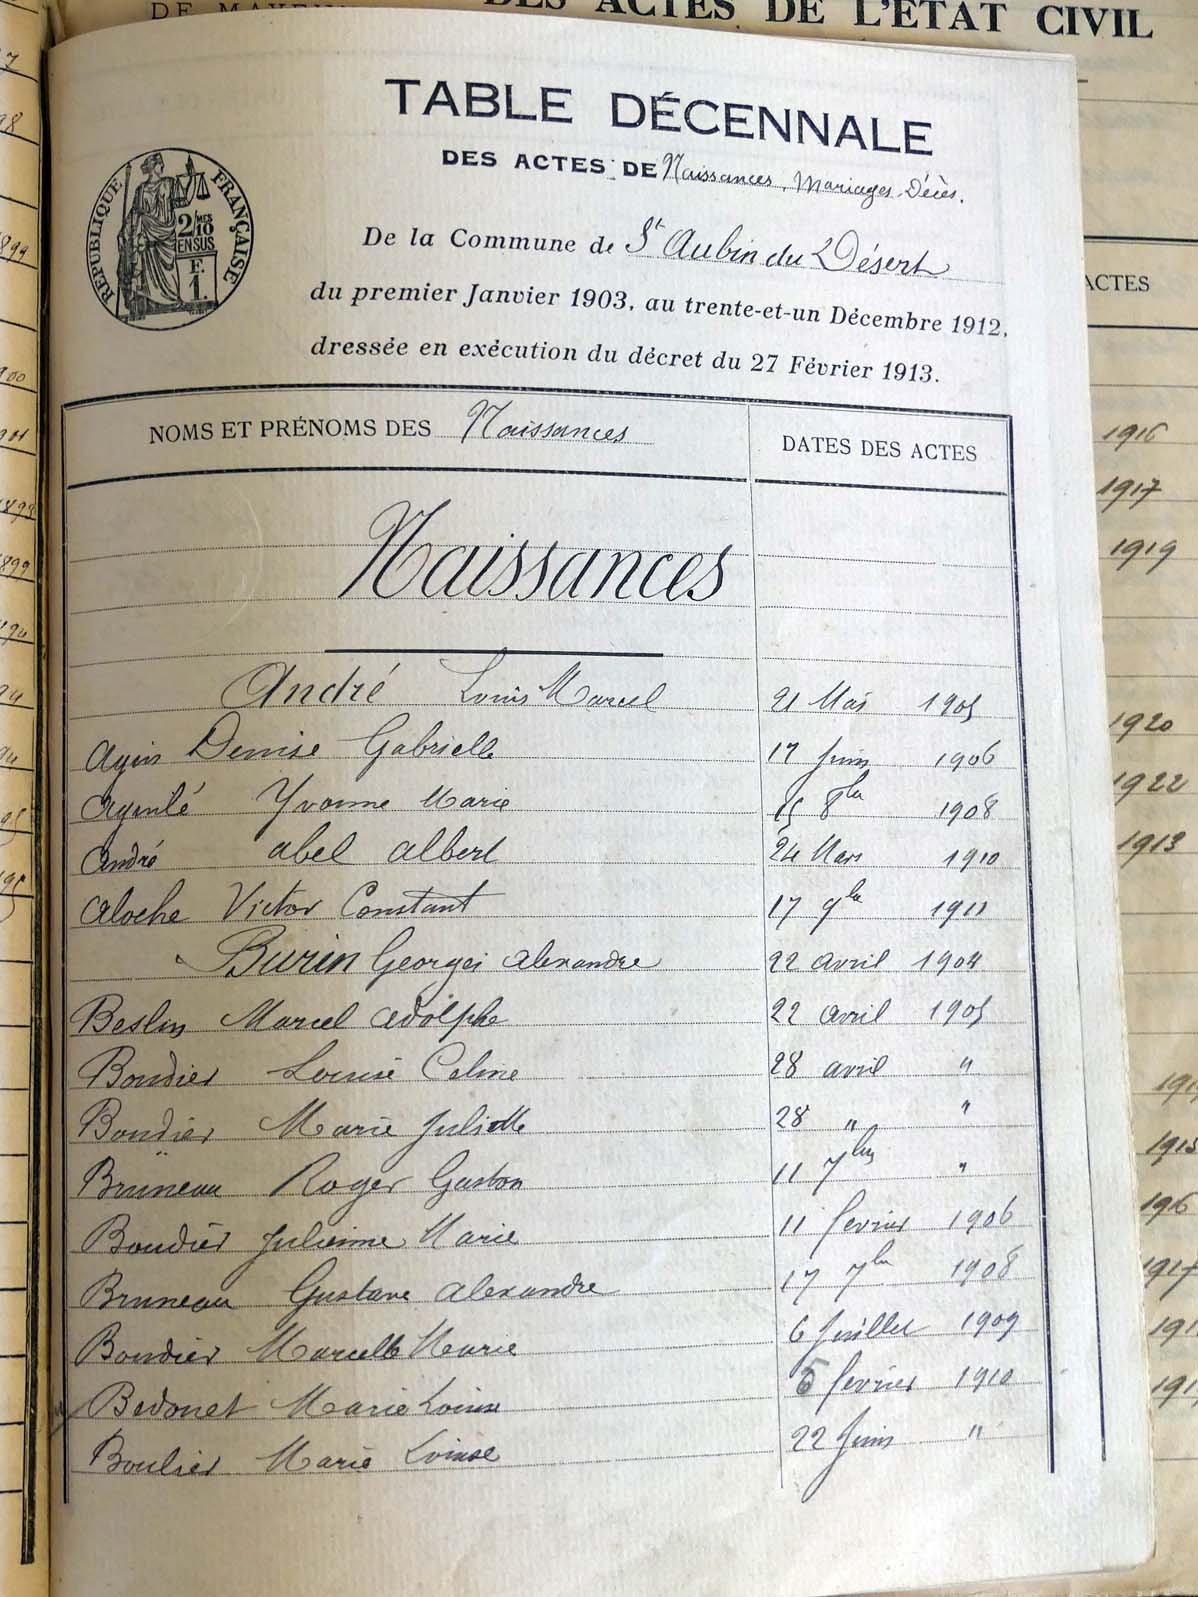 DES ACTES DE L'ÉTAT CIVIL
TABLE DÉCENNALE
DES ACTES DE Naissances, Mariages, Décès.
RÉPUBLIQUE FRANÇAISE
2/10 MES
EN SUS
F.
1.
De la Commune de St Aubin du Désert
du premier Janvier 1903, au trente-et-un Décembre 1912,
dressée en exécution du décret du 27 Février 1913.
NOMS ET PRÉNOMS DES Naissances DATES DES ACTES
Naissances
André Louis Marcel 21 Mai 1905
Denise Gabrielle 17 Juin 1906
Yvonne Marie 15 8bre 1908
André Abel Albert 24 Mars 1910
Aloche Victor Constant 17 9bre 1911
Burin Georges Alexandre 22 avril 1904
Beslin Marcel Adolphe 22 avril 1905
Boudier Louise Celine 28 avril "
Boudier Marie Juliette 28 " "
Bruneau Roger Gaston 11 7bre "
Boudier Julienne Marie 11 fevrier 1906
Bruneau Gustave Alexandre 17 7bre 1908
Boudier Marcelle Marie 6 Juillet 1909
Bedouet Marie Louise 5 fevrier 1910
Boulier Marie Louise 22 Juin "
ACTES
1916
1917
1919
1920
1922
1913
1915
1916
1917